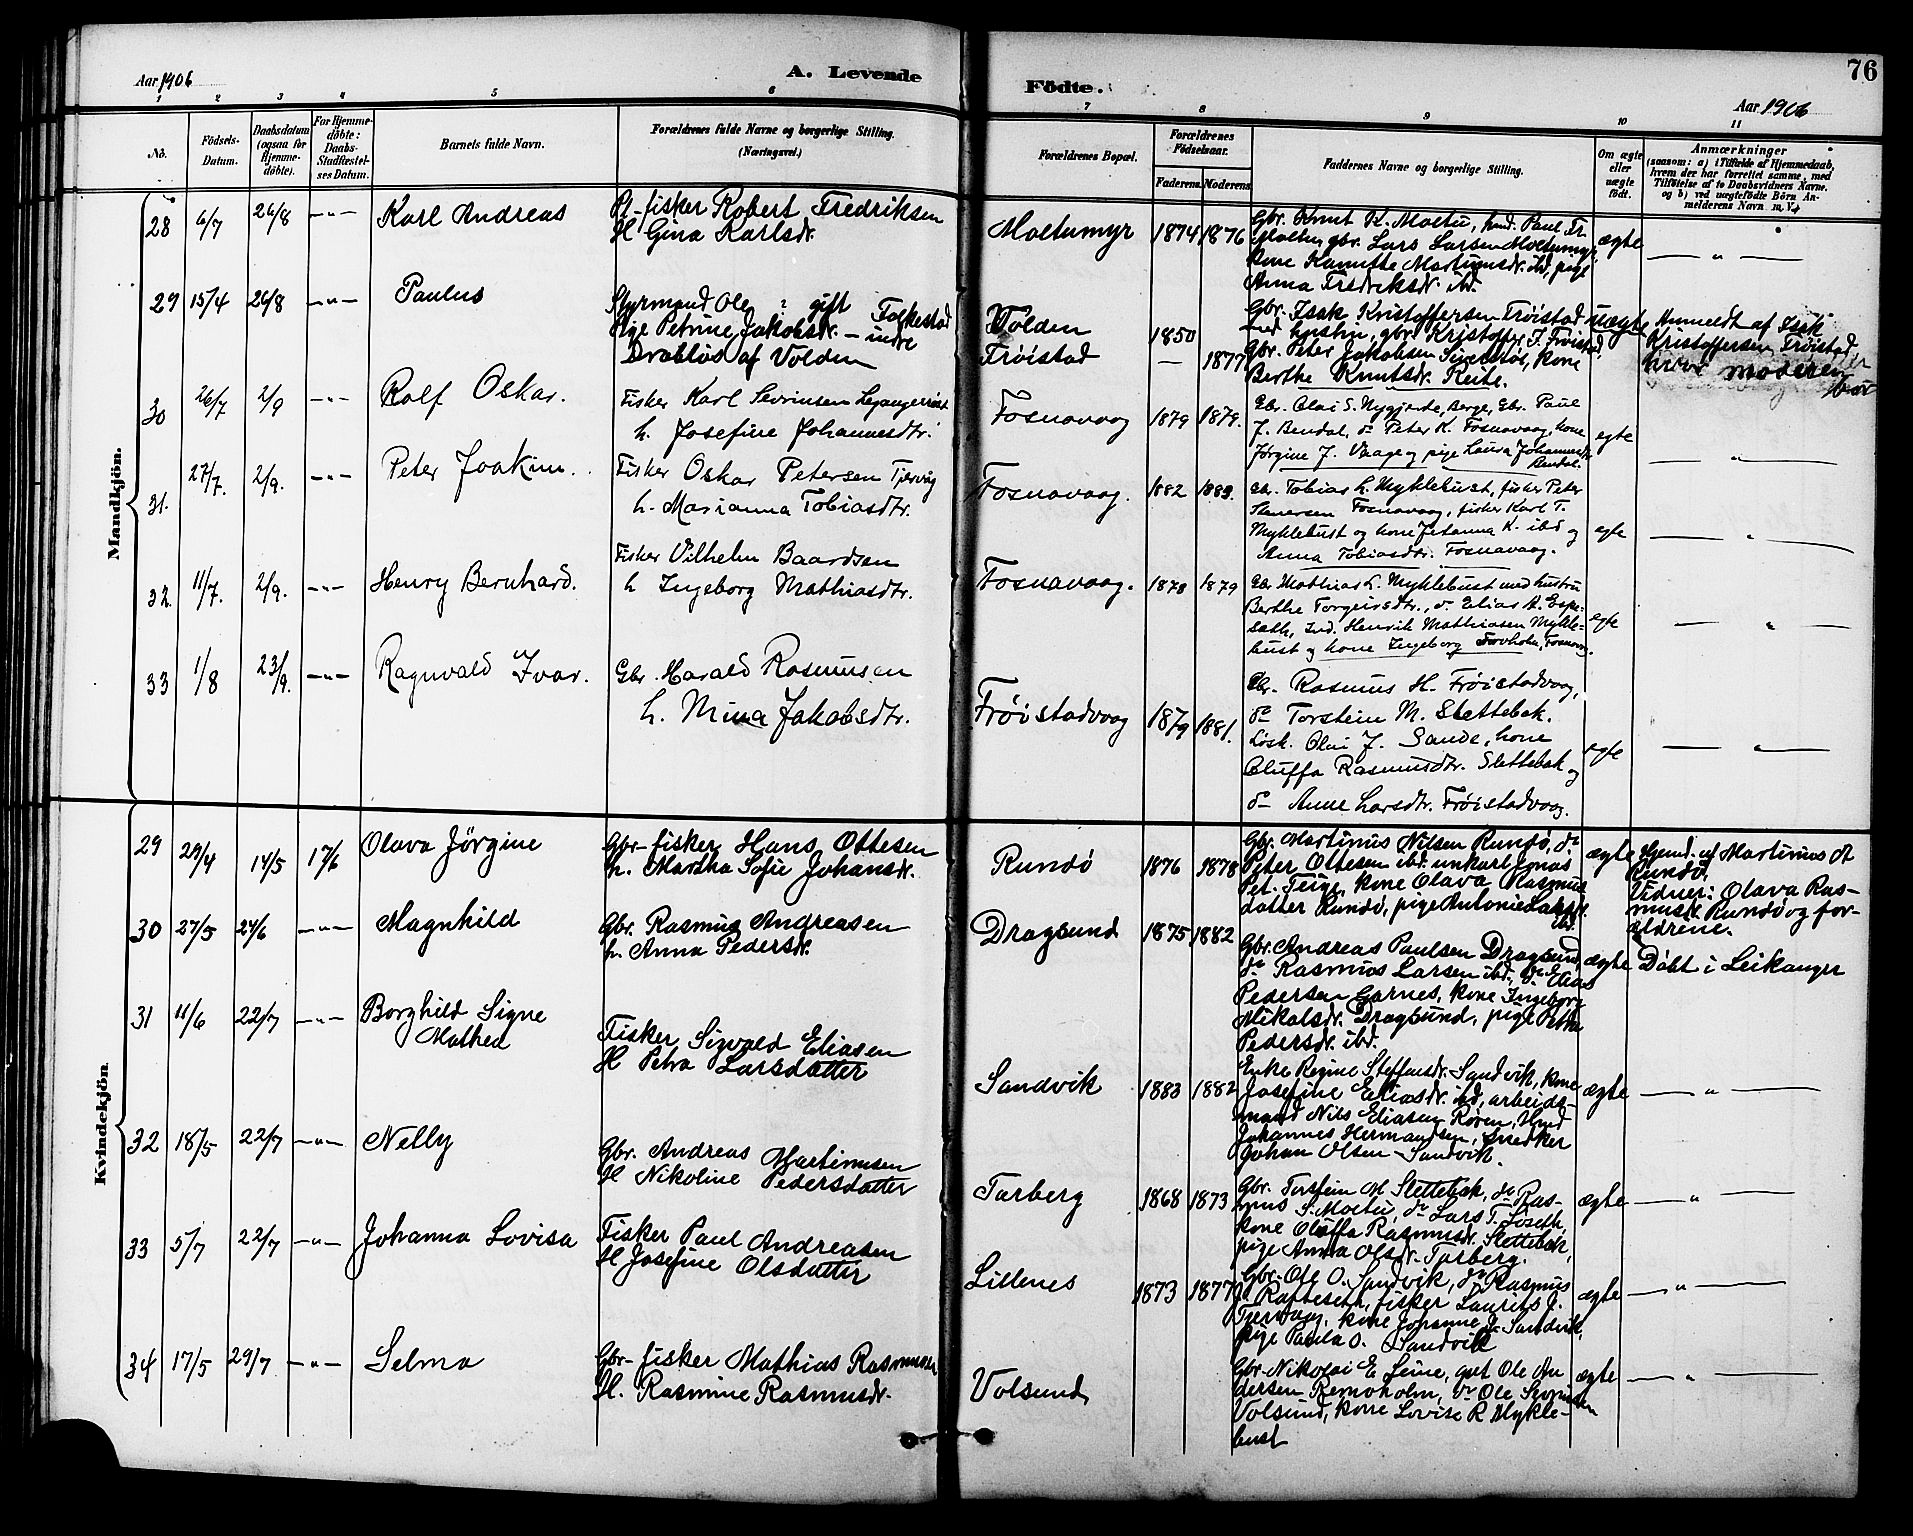 Aar 1906
A. Levende
Födte.
76
Aar 1906
1 2 3 4 5 6 7 8 9 10 11
No.
Födsels-
Datum.
Daabsdatum
(ogsaa for
Hjemme-
döbte).
For Hjemme-
döbte:
Daabs-
Stadfæstel-
ses Datum.
Barnets fulde Navn.
Forældrenes fulde Navne og borgerlige Stilling.
(Næringsvei.)
Forældrenes Bopæl.
Forældrenes
Födselsaar.
Faderens. Moderens.
Faddernes Navne og borgerlige Stilling.
Om ægte
eller
uægte
født.
Anmærkninger
(saasom: a) i Tilfælde af Hjemmedaab,
hvem der har forrettet samme, med
Tilföielse af to Daabsvidners Navne.
og b) ved uægtefödte Börn An-
melderens Navn m. V.)
Mandkjön.
28 6/7 26/8 —"— Karl Andreas
fisker Robert Fredriksen
H Gina Karlsdr.
Moltumyr 1874 1876
Gbr. Knut K. Moltu, Paul Fr.
Moltu, gbr. Lars Larsen Moltumyr,
kone Martinusdr. ibd, pige
Anna Fredriksdr. ibd.
ægte — " —
29 15/4 26/8 —"— Paulus
Styrmand Ole ? gift Folkestad
Pige Petrine Jakobsdr. – indre
Drabløs af Volden
Volden 1850
Trøistad — 1877
Gbr. Isak Kristoffersen Frøistad
med hustru, gbr. Kristoffer I. Frøistad,
Gbr. Peter Jakobsen kone
Berthe Knutsdr. Reite.
uægte Anmeldt af Isak
Kristoffersen Frøistad
hvor moderen er
30 26/7 2/9 —"— Rolf Oskar.
Fisker Karl Sevrinsen
h. Josefine Johannesdtr.
Fosnavaag 1879 1879.
Gbr. Olai S. Nygjerde, Berge, Gbr. Paul
J. Bendal, do Peter K. Fosnavaag, kone
Jørgine J. Vaage og pige Laura Johannesdtr
Rendal.
egte — " —
31. 27/7. 2/9. —"— Peter Joakim.
Fisker Oskar Petersen Tjervåg
h. Marianna Tobiasdtr.
Fosnavaag. 1882 1883.
Gbr. Tobias L. Myklebust, fisker Peter
Fosnavaag, fisker Karl T.
Myklebust og kone K. ibd og
Anna Tobiasdtr. Fosnavaag.
egte — " —
32. 11/7. 2/9. —"— Henry Bernhard.
Fisker Vilhelm Baardsen
h Ingeborg Mathiasdtr.
Fosnavaag. 1878 1879
Gbr Mathias L. Myklebust med hustru
Berthe Torgeirsdtr., do Elias A. Espe-
sæth, Ind. Henrik Mathiasen Mykle-
bust og kone Ingeborg Fosnav.
egte — " —
33 1/8 23/9. —"— Ragnvald Ivar.
Gbr. Harald Rasmussen
h. Mina Jakobsdtr.
Frøistadvaag 1879 1881.
Gbr. Rasmus H. Frøistadvaag,
do Torstein M. Slettebak.
Løsk. Olai J. Sande, kone
Oluffa Rasmusdtr. Slettebak og
do Anne Larsdtr. Frøistadvaag.
egte — " —
Kvindekjön.
29 29/4 14/5 17/6 Olava Jørgine
Gbr–fisker Hans Ottesen
h. Martha Sofie Johansdr.
Rundö 1876 1878
Gbr. Martinus Nilsen Rundö, do
Peter Ottesen ibd. unkarl Jonas
Pet. Teige, kone Olava Rasmus
datter Rundö, pige Antonie
ibd.
ægte Hjemd. af Martinus N
Rundö.
Vidner: Olava Ras-
musdr. Rundö og for-
ældrene.
30 27/5 24/6 —"— Magnhild
Gbr. Rasmus Andreasen
h. Anna Pedersdr.
Dragsund 1875 1882
Gbr. Andreas Paulsen Dragsund,
do Rasmus Larsen ibd., do Elias
Pedersen Garnes, kone Ingeborg
Nikolsdr. Dragsund, pige Petra
Pedersdr. ibd.
ægte Döbt i Leikanger
31 11/6 22/7 —"— Borghild Signe
Mathea
Fisker Sigvald Eliasen
H Petra Larsdatter
Sandvik 1883 1882
Enke Regine Steffensdr. Sandvik, kone
Josefine Eliasdr. ibd, arbeids-
mand Nils Eliasen Røren, Ind
Johannes Hermandsen, Snedker
Johan Olsen – Sandvik.
ægte — " —
32 18/5 22/7 —"— Nelly
Gbr. Andreas Martinusen
H Nikoline Pedersdatter
Tarberg 1868 1873
Gbr. Torstein M Slettebak, do Ras-
mus S. Moltu, do Lars T. Løseth,
kone Oluffa Rasmusdr. Slettebak,
pige Anna Olsdr. Tarberg.
ægte — " —
33 5/7 22/7 —"— Johanna Lovisa
Fisker Paul Andreasen
H Josefine Olsdatter
Lillenes 1873 1877
Gbr. Ole O. Sandvik, do Rasmus
J. Rafteseth, fisker Laurits J.
Tjervaag, kone Johanne Sandvik,
pige Paula O. Sandvik
ægte — " —
34 17/5 29/7 —"— Selma
Gbr–fisker Mathias Rasmussen
H. Rasmine Rasmusdr.
Volsund 1873
Gbr. Nikolai E Leine, gut Ole An
dersen Remøholm, do Ole
Volsund, kone Lovise R Mykle-
bust
ægte — " —